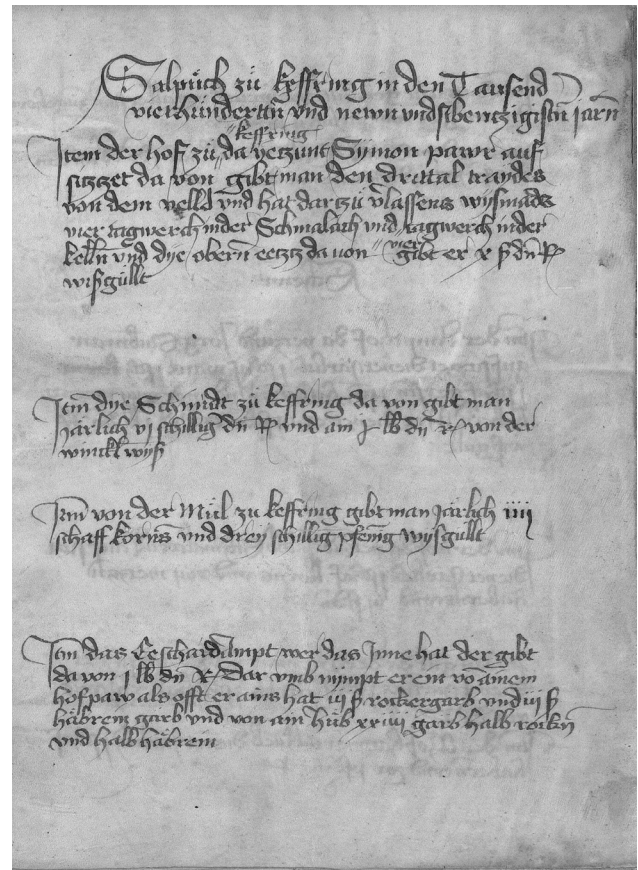 Salpuͤch zuͤ keffring in den Tausend
vierhundertn̄ vnd newn vndsibentzigistn̄ jarn̄
keffring
Item der hof zuͤ da yetzunt Symon pawr auf
sitzet da von gibt man den drittal traydes
von dem velld vnd hat dartzuͤ v̄lassens wysmads
vier tagwerch in der Schmalach vnd tagwerch in der
vier
kelln̄ vnd dye obern̄ da von gibt er x ß dn̄
wißgullt
Itm̄ dye Schmidt zuͤ keffring da von gibt man
järlich vj schilliḡ dn̄ vnd ain lb dn̄ von der
winckl wyß
Itm̄ von der Muͤl zu keffring gibt man järlich iiij
schaff korns̄ vnd drey schillig pfenīg wysgullt
Itm̄ das Ambt wer das Inne hat der gibt
da von j lb dn̄ Dar vmb nympt er ein vō ainem
hofpaw als offt er ains hat iij ß rockergarb vnd iij ß
häbrein garb vnd von ain huͤb xxiiij garb halb rockn̄
vnd halb häbrein